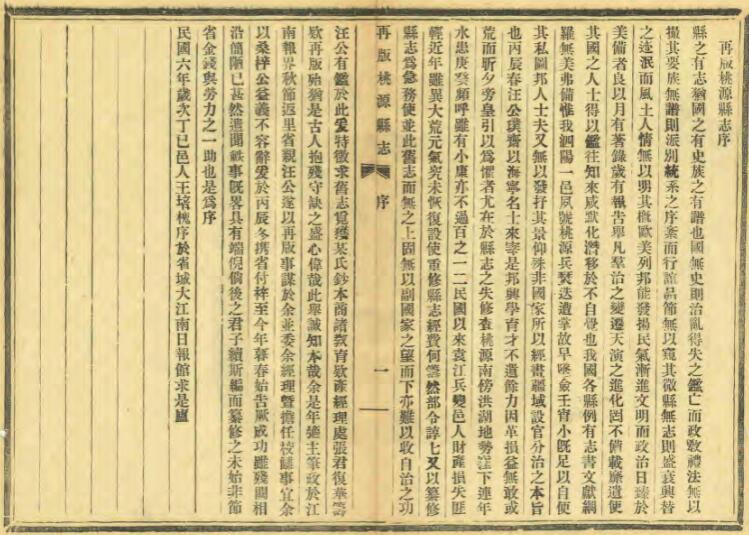 再版桃源縣志序
縣之有志猶國之有史族之有譜也國無史則治亂得失之鑑亡而政敎禮法無以
撮其要族無譜則派別統系之序紊而行誼品節無以窺其微縣無志則盛衰興替
之迹泯而風土人情無以明其槪歐美列邦能發揚民氣漸進文明而政治日臻於
美備者良以月有著錄歲有報告舉凡羣治之變遷天演之進化罔不備載靡遺使
其國之人士得以鑑往知來咸默化潛移於不自覺也我國各縣例有志書文獻網
羅無美弗備惟我泗陽一邑夙號桃源兵燹迭遭掌故早墜僉壬宵小旣足以自便
其私圖邦人士夫又無以發抒其景仰殊非國家所以經畫疆域設官分治之本旨
也丙辰春汪公璞齋以海寧名士來宰是邦興學育才不遺餘力因革損益無敢或
荒而昕夕旁皇引以爲懼者尤在於縣志之失修查桃源南傍洪湖地勢窪下連年
水患庚癸頻呼雖有小康亦不過百之一二民國以來袁江兵變邑人財產損失匪
輕近年雖異大荒元氣究未恢復設使重修縣志經費何籌然部令諄七又以纂修
縣志爲急務使並此舊志而無之上固無以副國家之望而下亦難以收自治之功
再版桃源縣志
序
一
汪公有鑑於此爰特徵求舊志覓獲某氏鈔本商諸敎育欵產經理處張君復華籌
欵再版殆猶是古人抱殘守缺之盛心偉哉此舉誠知本哉余是年適主筆政於江
南報界秋節返里省親汪公遂以再版事謀於余並委余經理曁擔任校讎事宜余
以桑梓公益義不容辭爰於丙辰冬携省付梓至今年暮春始告厥成功雖殘闕相
沿簡陋已甚然遺聞軼事旣畧具有端倪倘後之君子續斯編而纂修之未始非節
省金錢與勞力之一助也是爲序
民國六年歲次丁巳邑人王培槐序於省城大江南日報館求是廬